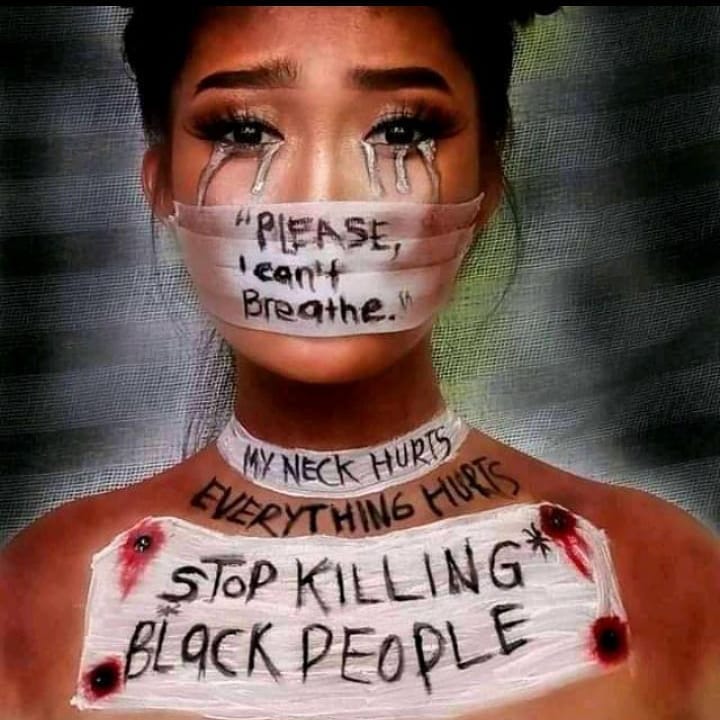 "PLEASE,
I can't
Breathe."
MY NECK HURTS
EVERYTHING HURTS
STOP KILLING*
*BLACK PEOPLE